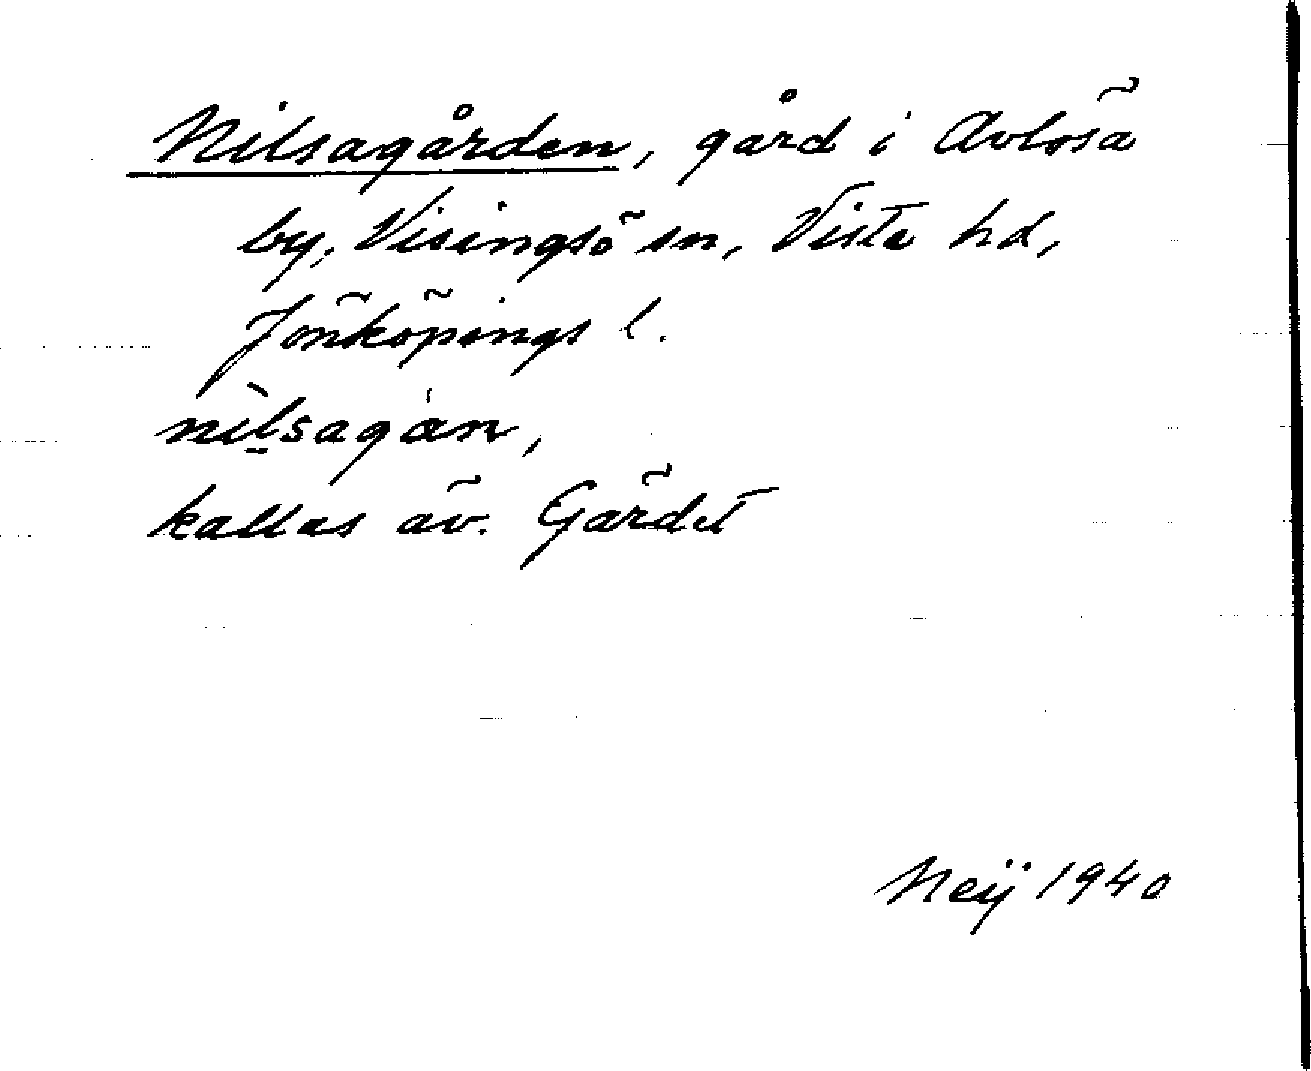 Nilsagården, gård i Avlösa
by, Visingsö sn, Vista hd,
Jönköpings l.
nìlsagán,
kallas äv. Gärdet
Neij 1940